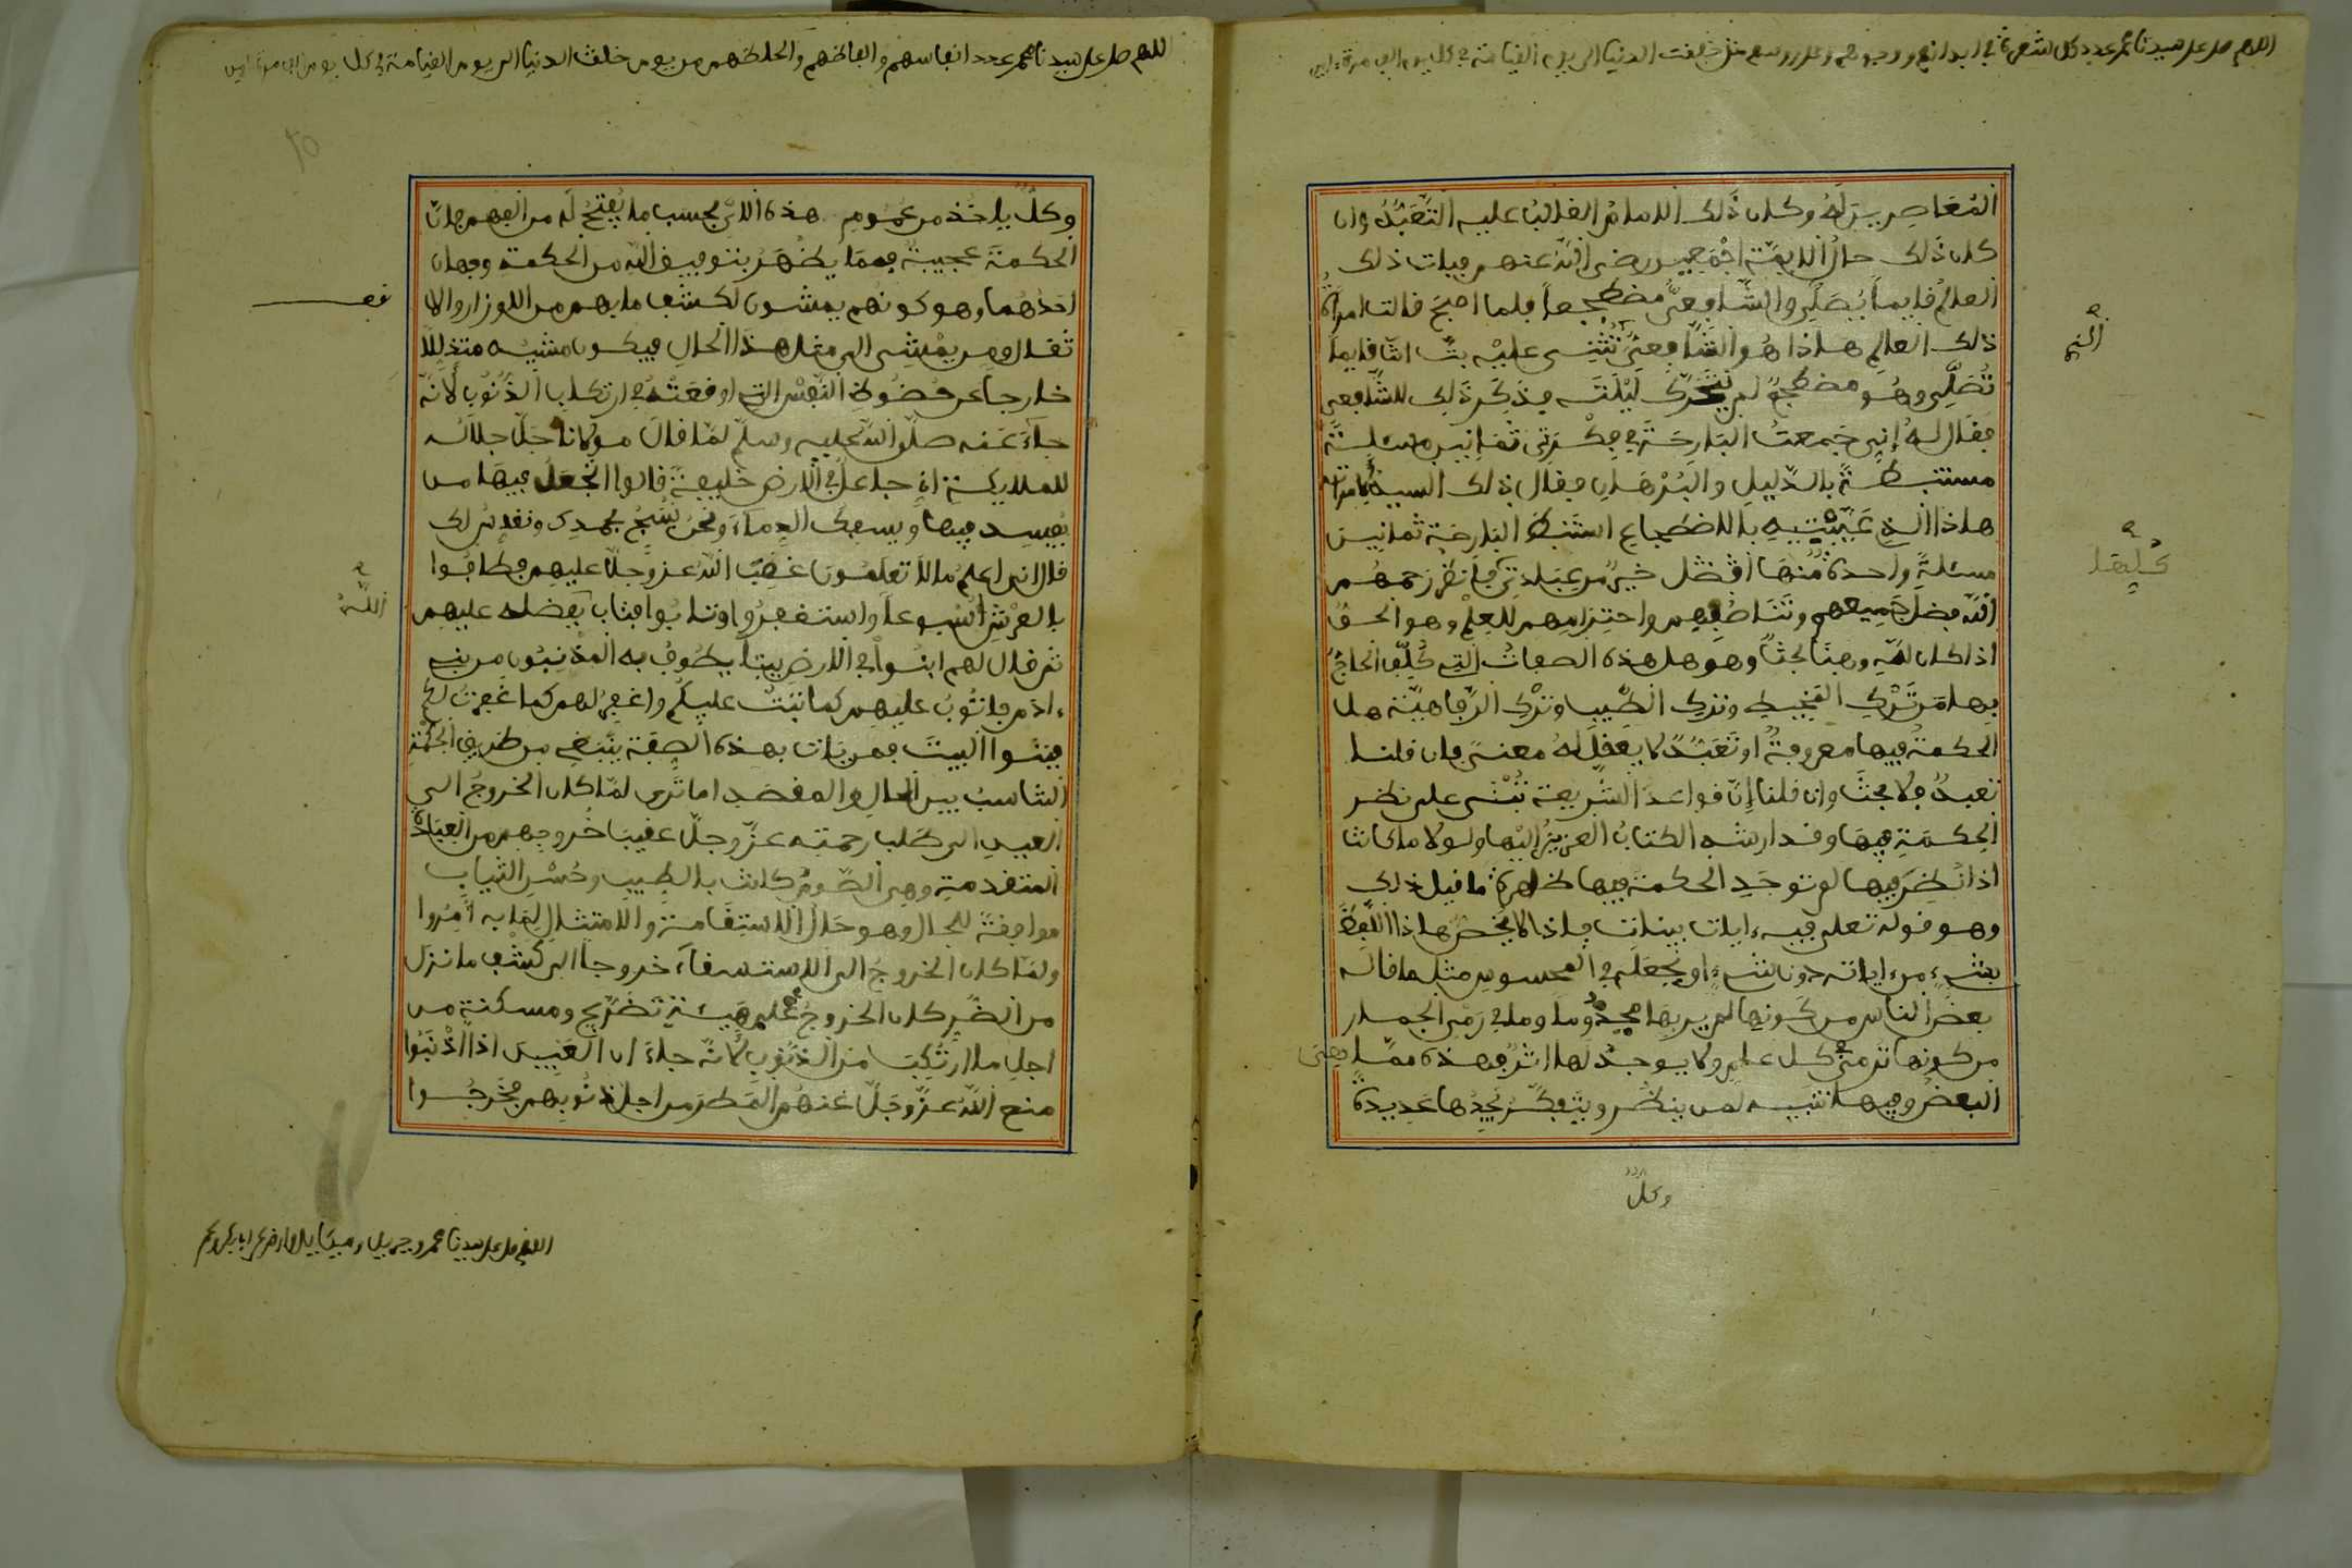 اللهم صل على سيدنا محمد عدد كل شعرة في ابدانهم ووجوههم وعلى رءوسهم منذ خلقت الدنيا الى يوم القيامة في كل يوم الف مرة ءامين
المُعَاصِرِينَ لَهُ وكان ذَلك الامامُ الغالبُ عليه التَّعَبُّدُ وان
كان ذَلك حالُ الايمّة اجْمَعِين رضي اللّه عنهم فبات ذلك
العالمُ قايماً يُصَلِّي والشّافِعِيّ مضطجعاً فلما اصبح قالت امرأة
ذلك العالِمِ هاذا هُو الشّافِعِيُّ تُثْنِى عليْه بتَّ انتَ قايماً
تُصَلِّي وهُو مضطجعٌ لم يتحرّك لَيْلَتَه فذَكَر ذَلك للشّافِعِي
فقال لهُ إنِي جَمعتُ البَارِحَةَ في فِكْرَتِي ثمَانِين مسْئلةً
مستنبطةً بالدّليلِ والبُرْهَانِ فقال ذلك السيدُ لامرأته
هاذا الذي عَيَّبْتِيهِ بالاضطجاعِ استَنبَطَ البَارِحَة ثمانين
مسئلةً واحدة مِّنهَا أفْضَل خيرٌ من عِبَادتِي فانظر رحمهُم
اللّه فضلَ جَمِيعهم وتَنَاصُفِهِم واحتِرَامِهِم للعِلمِ وهو الحق
اذا كان لله وهنَا بحثٌ وهُو هل هذه الصفاتُ التِي كُلِّف الحاجّ
بِها من تَرْكِ المَخِيط وترك الطِّيب وتَرْك الرّفاهيّة هل
الحكمةُ فِيها معروفةٌ او تَعَبّدٌ لا يعقلُ لهُ معنى فان قلنا
تعبدٌ فلا بحثَ وان قلنا إنّ قواعدَ الشّريعة تُبْنَى على نظر
الحِكمَةِ فِيهَا وقد ارشد الكتابُ العزيزُ اليْها ولولا ما كانت
اذا نُظِرَ فِيها لم توجَدِ الحكمة فِيها ظاهرة ما قيل ذلك
وهو قوله تعلى فيه ءايات بينات فاذا لا يخصّ هاذا اللّفظَ
بشيء من ءاياته دون شيء او نجعلَه في المحسوسِ مثل ما قاله
بعضُ الناس من كونِها لم ير بها مجذُوماً وما في رَمْي الجمار
من كونها ترمَى كل عامٍ ولا يوجدُ لها اثرٌ فهذه ممّا
البعضُ وفيها تنبيه لمن ينظر ويتفكّر يُجدُها عَدِيدة
وكلٌّ
اللهم صل على سيدنا محمد عدد انفاسهم والفاظهم والحاظهم من يوم خلقت الدنيا الى يوم القيامة في كل يوم الف مرة ءامين
وكلٌّ ياخذ من عمُومِ هذه الايِ بحسب ما يُفتَحُ له من الفهم فانّ
الحكمةَ عجيبةٌ فممّا يظهَرُ بتوفيق اللّه من الحكمة وجهان
احَدُهُما وهو كونُهم يمشون لكشْفِ ما بهم من الاوزار والا
ثقال ومن يمْشِي الى مثل هذا الحالِ فيكون مشيُه متذلِّلاً
خارجاً عن حُضُوظِ النّفْسِ التِي اوقعَتْهُ في ارتكابِ الذُّنُوب لأنّهُ
جاءَ عَنه صلّى اللّه عليه وسلّم لمّا قالَ مولانا جَلّ جلالُه
للملايكة اني جاعلٌ في الارض خليفةً قالوا اتجعَلُ فيها من
يُفسد فيها ويسفكُ الدِماءَ ونحنُ نُسَبِّحُ بحمدِك ونقدِّسُ لك
قال انى اعلمُ ما لا تعلَمُون غضِبَ اللّهُ عزّ وجلّ عليهِم فطافُوا
بالعرْشِ اسبوعاً واستغفِرُوا وتابُوا فتابَ بِفضله عليهِم
ثم قال لهم ابنُواْ في الارضِ بيتاً يطُوفُ به المذْنِبُون من بني
ءادم فاتُوبُ عليهِم كما تبْتُ عليكُم واغفِر لهم كما غفرْتُ لكم
فبنوا البيتَ فمن يَات بهذه الصِفة ينْبَغِي من طريق الحكمة
التناسبُ بين الحال والمقصد اما ترى لمّا كان الخروجُ الى
العيدِ الى طلب رحمتِه عزّ وجلّ عقيبَ خُروجِهِم من العِبَادة
المتقدمةِ وهي الصّومُ كانت بالطِيبِ وحُسْن الثيابِ
موافقةً للحال وهو حَالُ الاستِقَامة والامتثالِ لِمَا به أُمِروا
ولمّا كان الخروجُ الى الاستسقاءَ خروجاً الى كَشْفِ ما نزل
من الضّرِ كان الخروجُ على هَيئةِ تضَرّعٍ ومسكنةٍ من
اجلِ ما ارْتُكِبَ من الذّنوبِ لأنّه جاءَ ان العَبِيدَ اذا أذْنَبُوا
منع اللّه عزّ وجَلّ عَنهُم المَطرَ من اجل ذنُوبِهم فخَرجُوا
اللهم صل على سيدنا محمد وجبريل وميكاييل وارض عن ابابكر وعمر